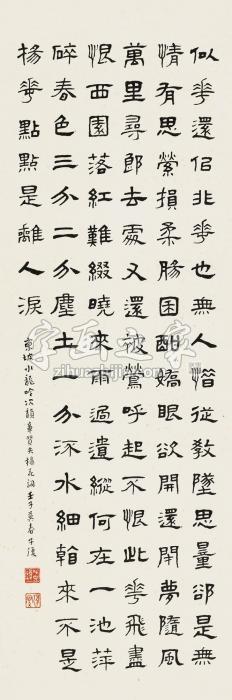 似華還佀非華也無人惜從教墜思量卻是無
情有思縈損柔腸困酣嬌眼欲開還閉夢隨風
萬里尋郎去處又還被鶯呼起不恨此華飛盡
恨西園落紅難綴曉來雨過遺縱何在一池萍
碎春色三分二分塵土一分流水細看來不是
楊華點點是離人淚
東坡水龍吟次韻章質夫楊花詞壬子莫春午後
字画之家